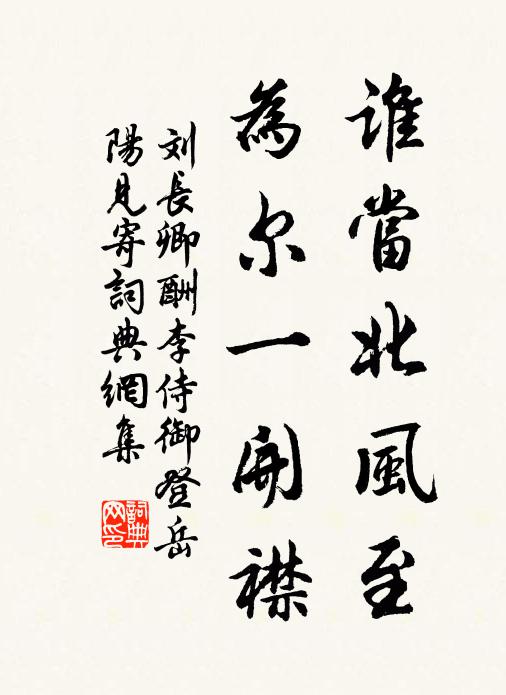 誰當北風至
為尔一開襟
刘長卿酬李侍御登岳
陽見寄詞典網集
詞典
网印